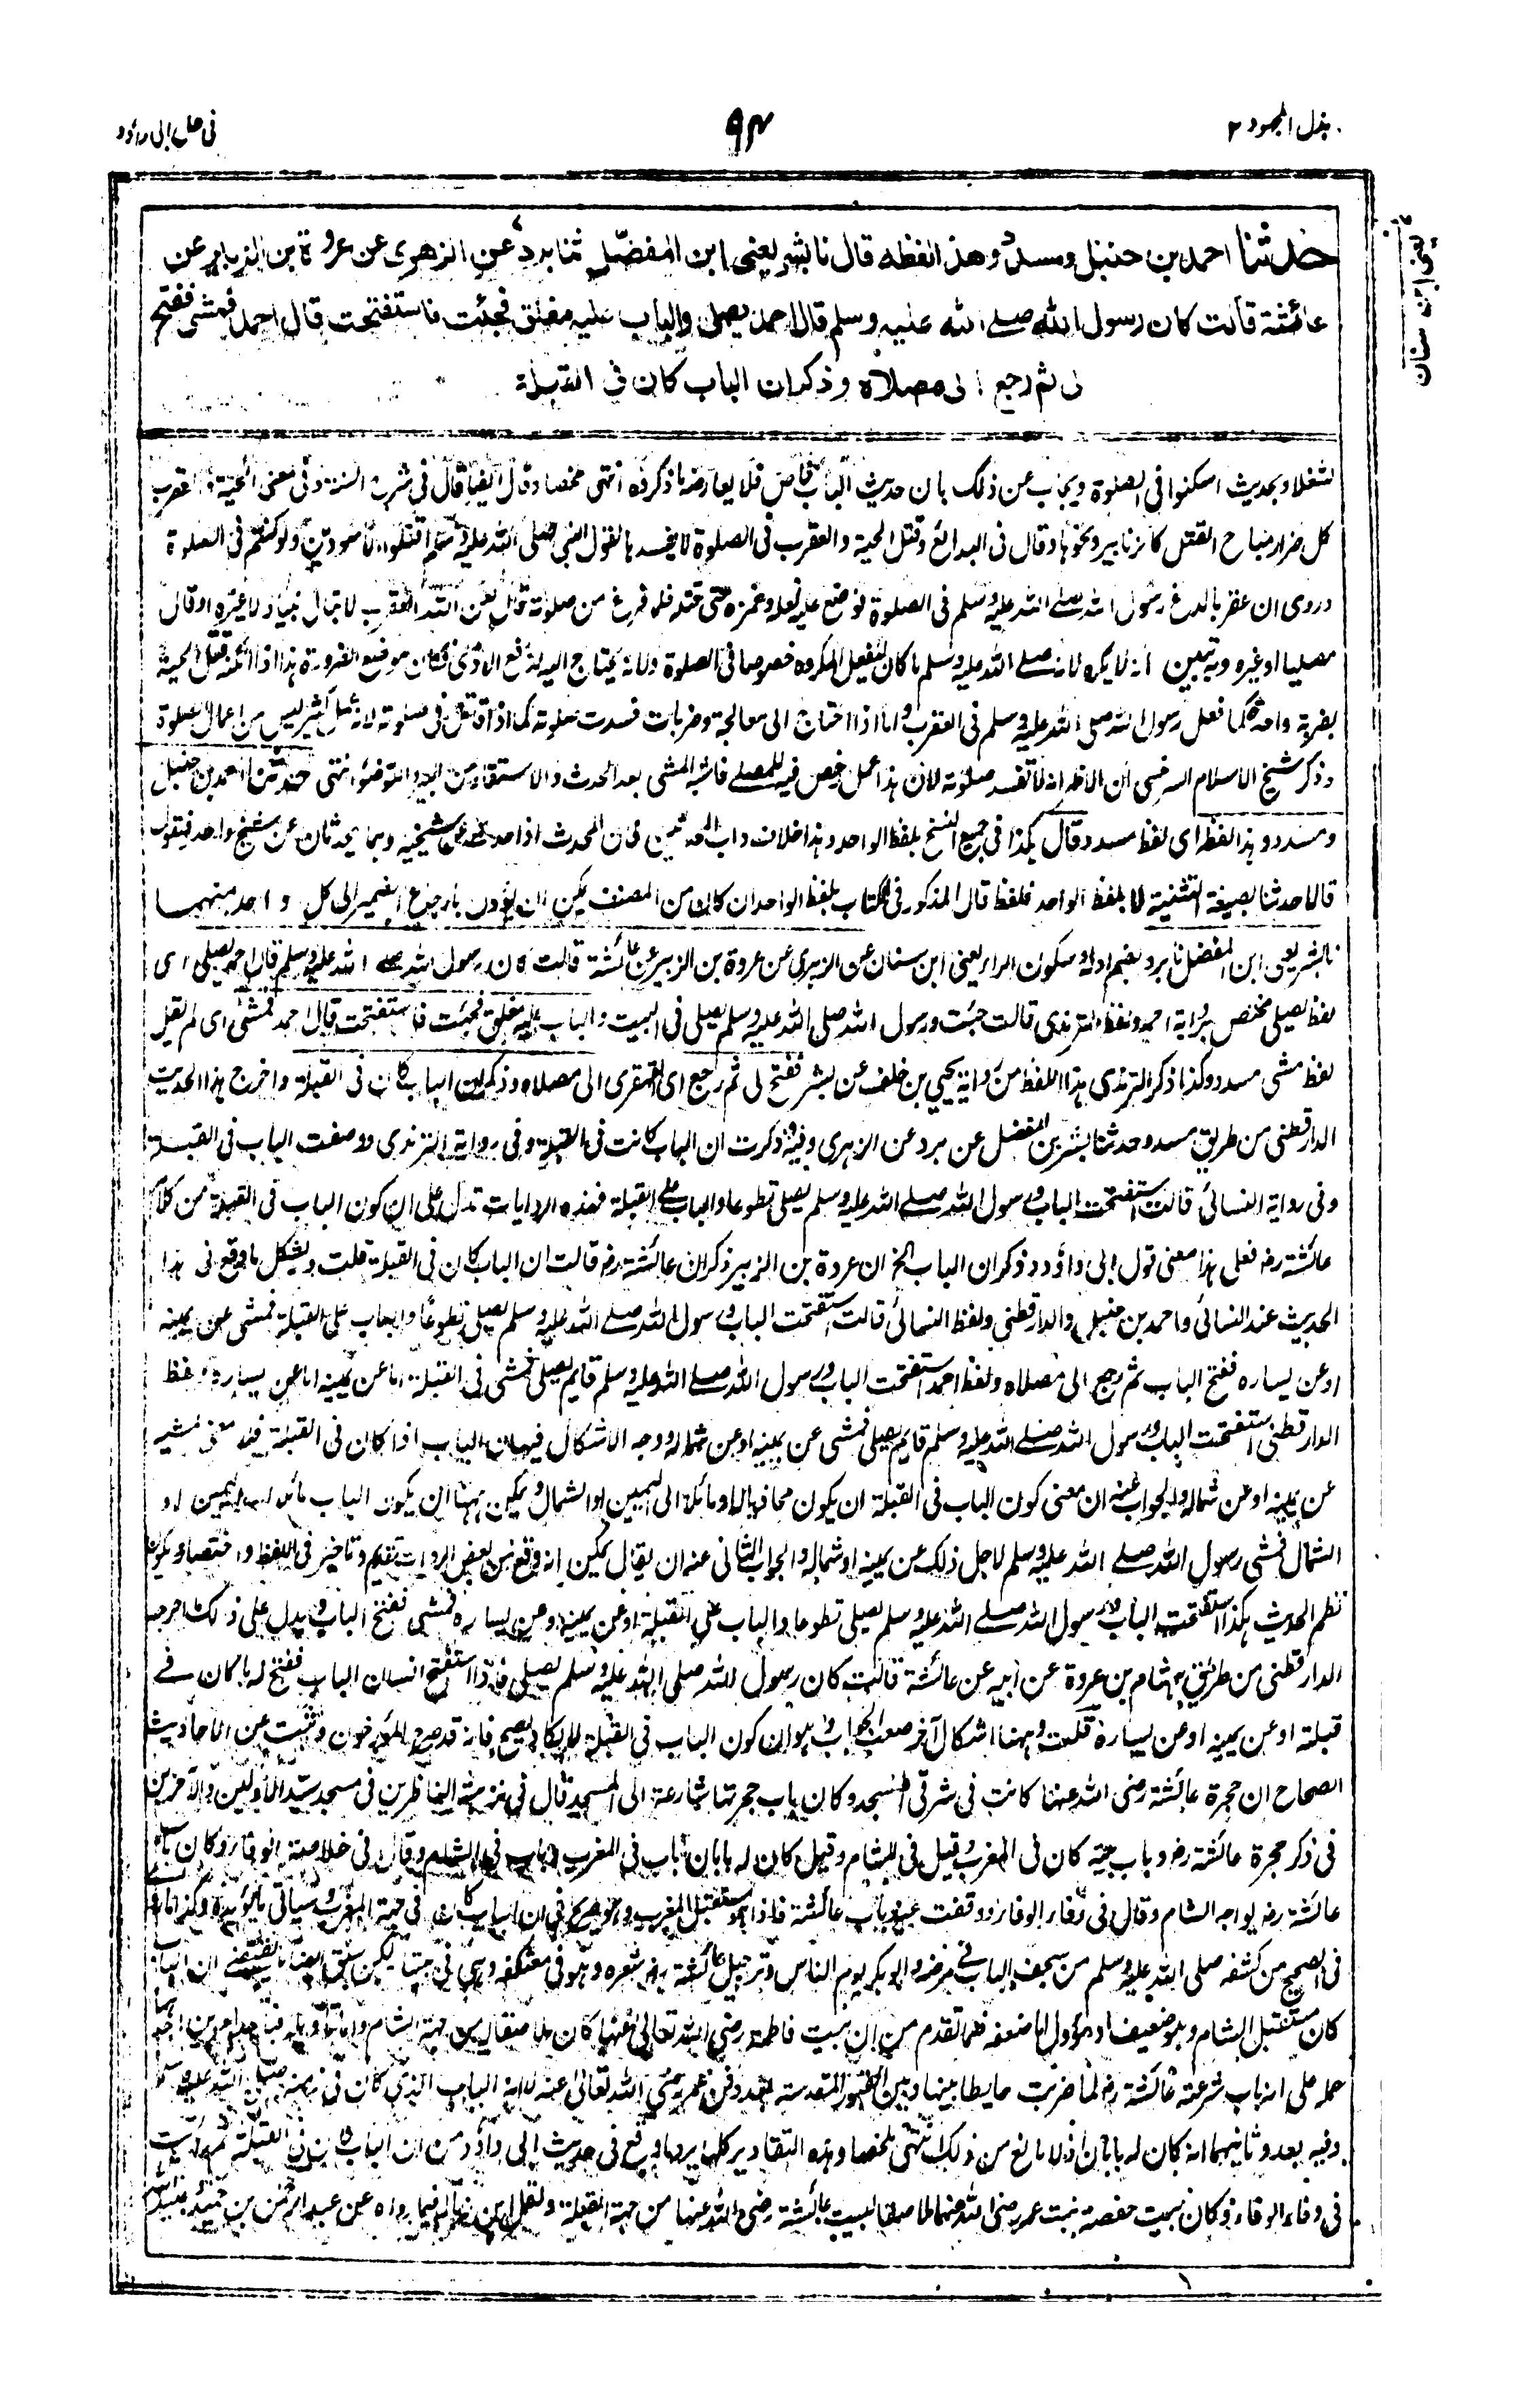 بذل المجهود ٢
٩٤
فى حل ابى داؤد
يعنى ابن سنان
حدثنا احمد بن حنبل ومسدد وهذا لفظه قال نا بشر يعنى ابن المفضل ثنا برد عن الزهرى عن عروة بن الزبير عن
عائشة قالت كان رسول الله صلى الله عليه وسلم قال احمد يصلى والباب عليه مغلق فجئت فاستفتحت قال احمد فمشى ففتح
لى ثم رجع الى مصلاه وذكر ان الباب كان فى القبلة
لشغلا وبحديث اسكنوا فى الصلوة ويجاب عن ذلك بان حديث الباب خاص فلا يعارضه ما ذكروه انتهى ملخصا وقال ايضا قال فى شرح السنة وفى معنى الحية والعقرب
كل ضرار مباح القتل كالزنابير ونحوها وقال فى البدائع وقتل الحية والعقرب فى الصلوة لا يفسدها لقول النبى صلى الله عليه وسلم اقتلوا الاسودين ولو كنتم فى الصلوة
وروى ان عقربا لدغ رسول الله صلى الله عليه وسلم فى الصلوة فوضع عليه نعله وغمزه حتى قتله فلما فرغ من صلوته قال لعن الله العقرب لا تبالى نبيا ولا غيره او قال
مصليا او غيره وبه تبين انه لا يكره لانه صلى الله عليه وسلم ما كان ليفعل المكروه خصوصا فى الصلوة ولانه يحتاج اليه لدفع الاذى فكان موضع الضرورة هذا اذا امكنه قتل الحية
بضربة واحدة كما فعل رسول الله صلى الله عليه وسلم فى العقرب واما اذا احتاج الى معالجة وضربات فسدت صلوته كما اذا قاتل فى صلوته لانه عمل كثير ليس من اعمال الصلوة
وذكر شيخ الاسلام السرخسى ان الاظهر انه لا تفسد صلوته لان هذا عمل رخص فيه للمصلى فاشبه المشى بعد الحدث والاستقاء من البير والتوضؤ انتهى حدثنا احمد بن حنبل
ومسدد وهذا لفظه اى لفظ مسدد قال هكذا فى جميع النسخ بلفظ الواحد وهذا خلاف داب المحدثين فان المحدث اذا حدث عن شيخيه وهما يحدثان عن شيخ واحد فيقول
قالا حدثنا بصيغة التثنية لا بلفظ الواحد فلفظ قال المذكور فى الكتاب بلفظ الواحد ان كان من المصنف يمكن ان يؤول بارجاع الضمير الى كل واحد منهما
نا بشر يعنى ابن المفضل نا برد بضم اوله وسكون الراء يعنى ابن سنان عن الزهرى عن عروة بن الزبير عن عائشة قالت كان رسول الله صلى الله عليه وسلم قال احمد يصلى اى
لفظ يصلى مختص برواية احمد ولفظ الترمذى قالت جئت ورسول الله صلى الله عليه وسلم يصلى فى البيت والباب عليه مغلق فجئت فاستفتحت قال احمد فمشى اى لم يقل
لفظ مشى مسدد وكذا ذكر الترمذى هذا اللفظ من رواية يحيى بن خلف عن بشر ففتح لى ثم رجع اى القهقرى الى مصلاه وذكر ان الباب كان فى القبلة واخرج هذا الحديث
الدارقطنى من طريق مسدد حدثنا بشر بن المفضل عن برد عن الزهرى وفيه وذكرت ان الباب كانت فى القبلة وفى رواية الترمذى ووصفت الباب فى القبلة
وفى رواية النسائى قالت استفتحت الباب ورسول الله صلى الله عليه وسلم يصلى تطوعا والباب على القبلة فهذه الروايات تدل على ان كون الباب فى القبلة من كلام
عائشة رض فعلى هذا معنى قول ابى داؤد وذكر ان الباب الخ ان عروة بن الزبير ذكر ان عائشة رض قالت ان الباب كان فى القبلة قلت ويشكل ما وقع فى هذا
الحديث عند النسائى واحمد بن حنبل والدارقطنى ولفظ النسائى قالت استفتحت الباب ورسول الله صلى الله عليه وسلم يصلى تطوعا والباب على القبلة فمشى عن يمينه
او عن يساره ففتح الباب ثم رجع الى مصلاه ولفظ احمد استفتحت الباب ورسول الله صلى الله عليه وسلم قايم يصلى فمشى فى القبلة اما عن يمينه اما عن يساره ولفظ
الدارقطنى استفتحت الباب ورسول الله صلى الله عليه وسلم قايم يصلى فمشى عن يمينه او عن شماله ووجه الاشكال فيه ان الباب اذا كان فى القبلة فما معنى مشيه
عن يمينه او عن شماله والجواب عنه ان معنى كون الباب فى القبلة ان يكون محاذيا لها او مائلة الى اليمين او الشمال ويمكن ههنا ان يكون الباب مائلا الى اليمين او
الشمال فمشى رسول الله صلى الله عليه وسلم لاجل ذلك عن يمينه او شماله والجواب الثانى عنه ان يقال يمكن انه وقع من بعض الروات تقديم وتاخير فى اللفظ واختصار ويكون
نظم الحديث هكذا استفتحت الباب ورسول الله صلى الله عليه وسلم يصلى تطوعا والباب على القبلة او عن يمينه او عن يساره فمشى ففتح الباب ويدل على ذلك ما اخرجه
الدارقطنى من طريق هشام بن عروة عن أبيه عن عائشة قالت كان رسول الله صلى الله عليه وسلم يصلى فاذا استفتح انسان الباب ففتح له ما كان فى
قبلته او عن يمينه او عن يساره قلت وههنا اشكال آخر صعب الجواب وهو ان كون الباب فى القبلة لا يكاد يصح فانه قد صرح المؤرخون وثبت عن الاحاديث
الصحاح ان حجرة عائشة رضى الله عنها كانت فى شرقى المسجد وكان باب حجرتها شارعة الى المسجد قال فى نزهة الناظرين فى مسجد سيد الأولين والآخرين
فى ذكر حجرة عائشة رض وباب بيته كان فى المغرب وقيل فى الشام وقيل كان له بابان باب فى المغرب وباب فى الشام وقال فى خلاصة الوفا وكان باب
عائشة رض يواجه الشام وقال فى وفاء الوفاء ووقفت عند باب عائشة فاذا هو مستقبل المغرب وهو صريح فى ان الباب كان فى جهة المغرب وسياتى ما يؤيده وكذا ما
فى الصحيح من كشفه صلى الله عليه وسلم من سجف الباب فى مرضه وابو بكر يؤم الناس وترجيل عائشة رض شعره وهو فى معتكفه وهى فى بيتها لكن سبق ايضا ما يقتضى ان الباب
كان مستقبل الشام وهو ضعيف او مؤول اما ضعفه فلما تقدم من ان بيت فاطمة رضى الله تعالى عنها كان ملاصقا له من جهة الشام واما تأويله فباحد امرين احدهما
حمله على انه باب شرعته عائشة رض لما ضربت حايطا بينها وبين القبور المقدسة بعد دفن عمر رضى الله تعالى عنه لا انه الباب الذى كان فى زمنه صلى الله عليه وسلم
وفيه بعد وثانيهما انه كان له بابان اذ لا مانع من ذلك انتهى ملخصا وهذه التقادير كلها يردها ما وقع فى حديث ابى داؤد من ان الباب كان فى القبلة ثم رايت
فى وفاء الوفاء وكان بيت حفصة بنت عمر رضى الله عنهما ملاصقا لبيت عائشة رضى الله عنها من جهة القبلة ونقل ابن زبالة فيما رواه عن عبد الرحمن بن حميد